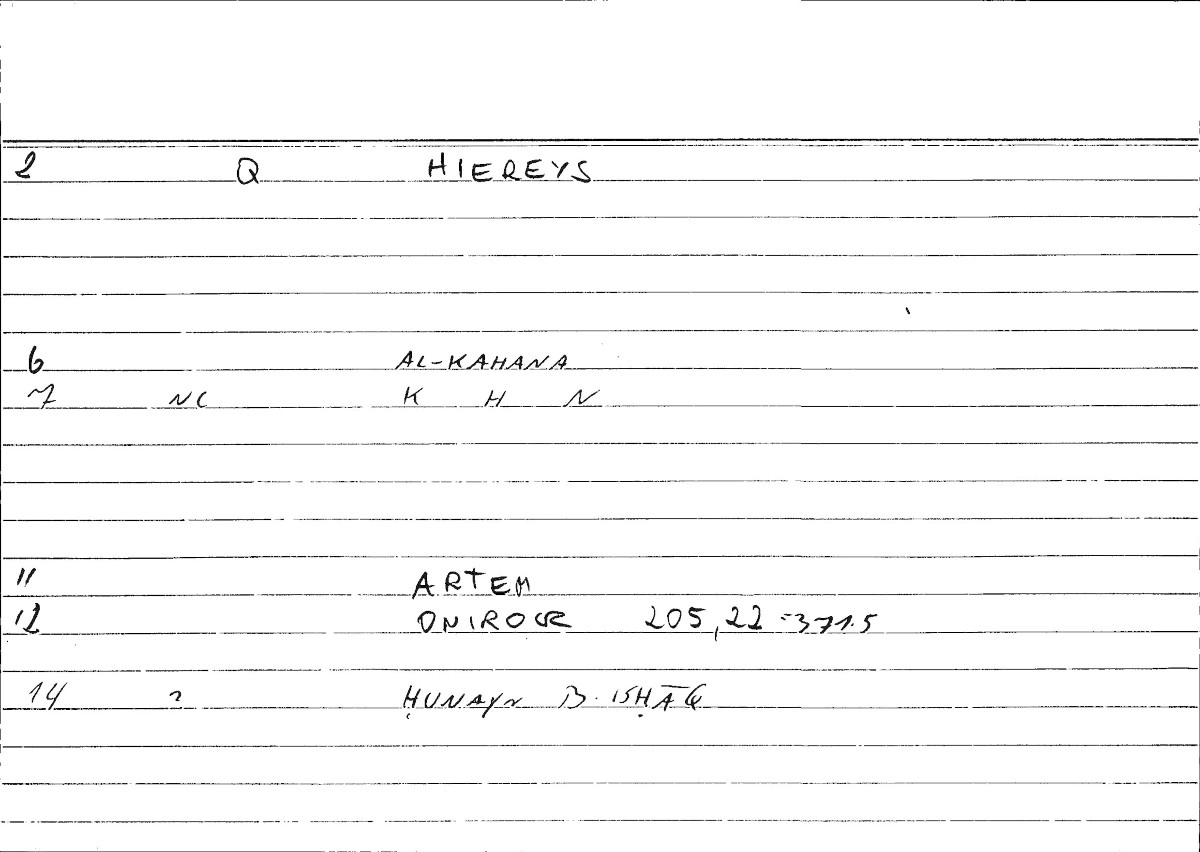 2 Q HIEREYS
6 AL-KAHANA
7 NC K H N
11 ARTEM
12 ONIROCR 205,22 = 371.5
14 2 ḤUNAYN B. ISḤĀQ